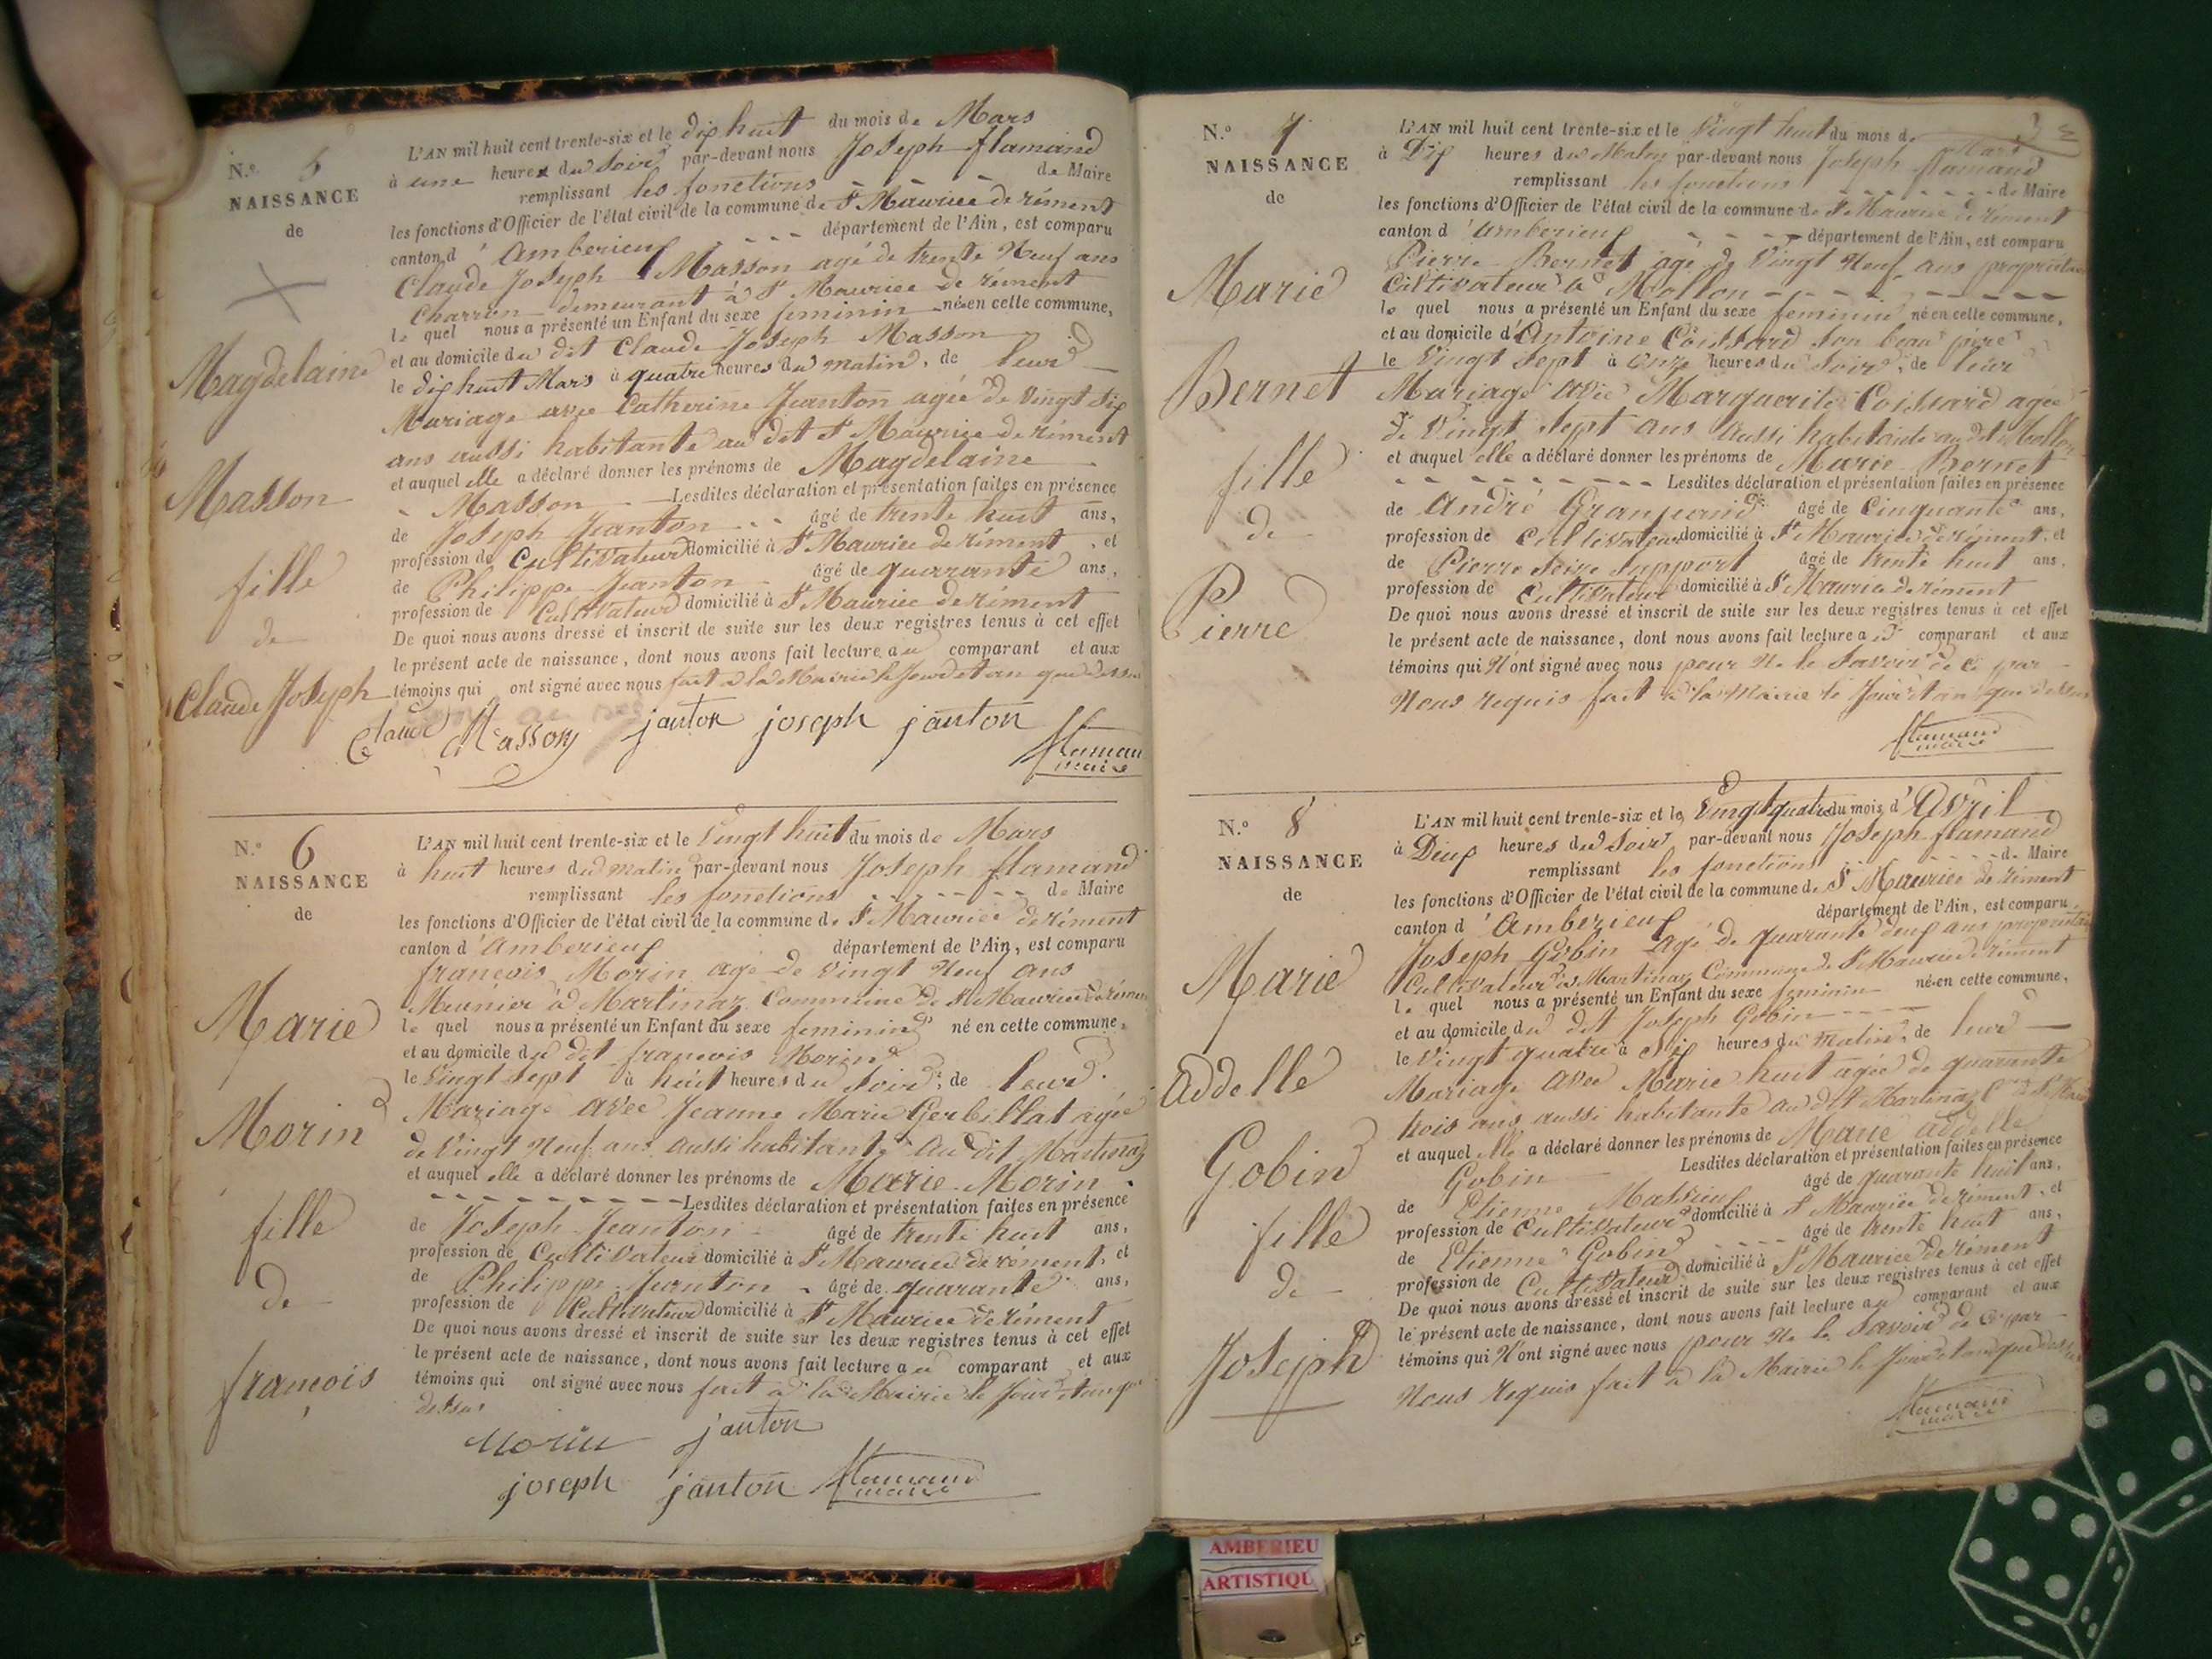 N.o 5
NAISSANCE
de
Magdelaine
Masson
fille
de
Claude Joseph
L'AN mil huit cent trente-six et le dix huit du mois de Mars
à une heures du Soir par-devant nous Joseph flamand
remplissant les fonctions de Maire
les fonctions d'Officier de l'état civil de la commune de St Maurice de rément
canton d'Amberieux département de l'Ain, est comparu
Claude Joseph Masson agé de trente Neuf ans
Charron demeurant à St Maurice de rément
le quel nous a présenté un Enfant du sexe feminin né en cette commune,
et au domicile du dit Claude Joseph Masson
le dix huit Mars à quatre heures du matin, de leur
Mariage avec Catherine Jeanton agée de Vingt Six
ans aussi habitante au dit St Maurice de rément
et auquel elle a déclaré donner les prénoms de Magdelaine
Masson Lesdites déclaration et présentation faites en présence
de Joseph Jeanton âgé de trente huit ans,
profession de Cultivateur domicilié à St Maurice de rément, et
de Philippe Jeanton âgé de quarante ans,
profession de Cultivateur domicilié à St Maurice de rément
De quoi nous avons dressé et inscrit de suite sur les deux registres tenus à cet effet
le présent acte de naissance, dont nous avons fait lecture au comparant et aux
témoins qui ont signé avec nous fait à la Mairie le Jour et an que dessus
Claude Masson janton joseph janton
flamand
maire
N.o 6
NAISSANCE
de
Marie
Morin
fille
de
françois
L'AN mil huit cent trente-six et le Vingt huit du mois de Mars
à huit heures du matin par-devant nous Joseph flamand
remplissant les fonctions de Maire
les fonctions d'Officier de l'état civil de la commune de St Maurice de rément
canton d'Amberieux département de l'Ain, est comparu
françois Morin agé de vingt Neuf ans
Meunier à Martinaz Commune de St Maurice de rément
le quel nous a présenté un Enfant du sexe feminin né en cette commune,
et au domicile du dit françois Morin
le Vingt Sept à huit heures du Soir, de leur
Mariage avec Jeanne Marie Gerbillat agée
de Vingt Neuf ans aussi habitante au dit Martinaz
et auquel elle a déclaré donner les prénoms de Marie Morin
Lesdites déclaration et présentation faites en présence
de Joseph Jeanton âgé de trente huit ans,
profession de Cultivateur domicilié à St Maurice de rément, et
de Philippe Jeanton âgé de quarante ans,
profession de Cultivateur domicilié à St Maurice de rément
De quoi nous avons dressé et inscrit de suite sur les deux registres tenus à cet effet
le présent acte de naissance, dont nous avons fait lecture au comparant et aux
témoins qui ont signé avec nous fait à la Mairie le Jour et an que
dessus
Morin janton
joseph janton flamand
maire
N.o 7
NAISSANCE
de
Marie
Bernet
fille
de
Pierre
L'AN mil huit cent trente-six et le Vingt huit du mois de Mars
à Dix heures du Matin par-devant nous Joseph flamand
remplissant les fonctions de Maire
les fonctions d'Officier de l'état civil de la commune de St Maurice de rément
canton d'Amberieux département de l'Ain, est comparu
Pierre Bernet agé de Vingt Neuf ans propriétaire
Cultivateur à Mollon
le quel nous a présenté un Enfant du sexe feminin né en cette commune,
et au domicile d'Antoine Coissard Son beau père
le Vingt Sept à onze heures du Soir, de leur
Mariage avec Marguerite Coissard agée
de Vingt Sept ans aussi habitante au dit Mollon
et auquel elle a déclaré donner les prénoms de Marie Bernet
Lesdites déclaration et présentation faites en présence
de André âgé de Cinquante ans,
profession de Cultivateur domicilié à St Maurice de rément, et
de Pierre âgé de trente huit ans,
profession de Cultivateur domicilié à St Maurice de rément
De quoi nous avons dressé et inscrit de suite sur les deux registres tenus à cet effet
le présent acte de naissance, dont nous avons fait lecture au comparant et aux
témoins qui N'ont signé avec nous pour Ne le Savoir de ce par
Nous requis fait à la Mairie le Jour et an que dessus
flamand
maire
N.o 8
NAISSANCE
de
Marie
Addelle
Gobin
fille
de
Joseph
L'AN mil huit cent trente-six et le Vingt quatre du mois d'Avril
à Deux heures du Soir par-devant nous Joseph flamand
remplissant les fonctions de Maire
les fonctions d'Officier de l'état civil de la commune de St Maurice de rément
canton d'Amberieux département de l'Ain, est comparu
Joseph Gobin agé de quarante deux ans propriétaire
Cultivateur à Martinaz Commune de St Maurice de rément
le quel nous a présenté un Enfant du sexe feminin né en cette commune,
et au domicile du dit Joseph Gobin
le Vingt quatre à Six heures du Matin, de leur
Mariage avec Marie huit agée de quarante
trois ans aussi habitante au dit Martinaz
et auquel elle a déclaré donner les prénoms de Marie addelle
Gobin Lesdites déclaration et présentation faites en présence
de Etienne Mathieux âgé de quarante huit ans,
profession de Cultivateur domicilié à St Maurice de rément, et
de Etienne Gobin âgé de trente huit ans,
profession de Cultivateur domicilié à St Maurice de rément
De quoi nous avons dressé et inscrit de suite sur les deux registres tenus à cet effet
le présent acte de naissance, dont nous avons fait lecture au comparant et aux
témoins qui N'ont signé avec nous pour Ne le Savoir de ce par
Nous requis fait à la Mairie le Jour et an que dessus
flamand
maire
AMBERIEU
ARTISTIQU